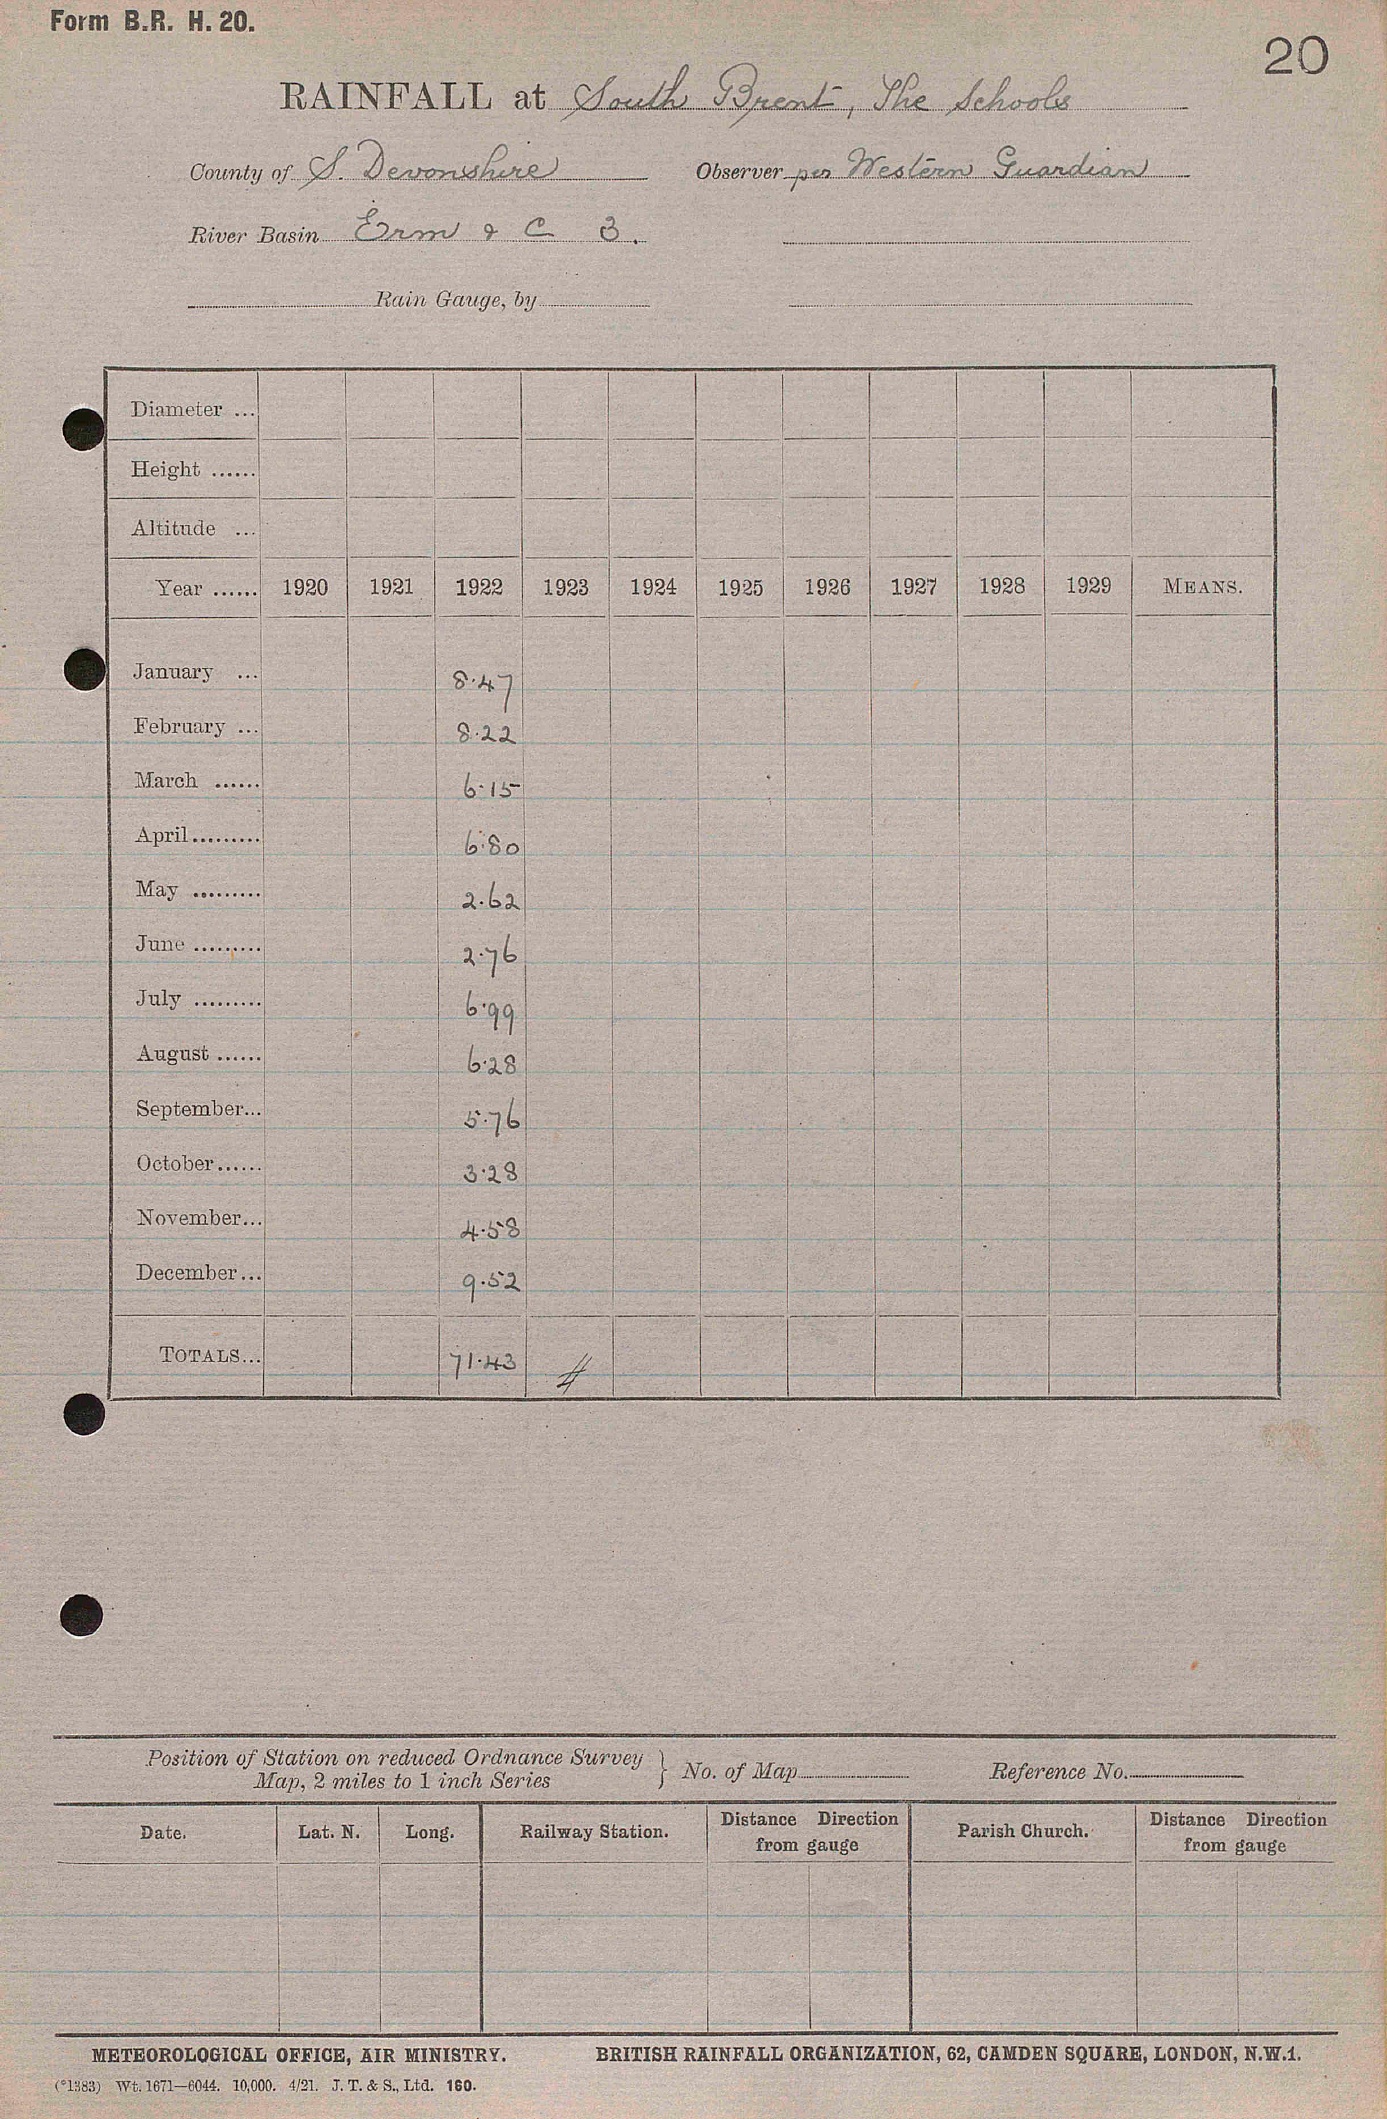 Form B.R. H. 20.
20
RAINFALL at South Brent, The Schools
County of S. Devonshire Observer per Western Guardian
River Basin Erm & C 3.
Rain Gauge, by
Diameter ...
Height ......
Altitude ...
Year ...... 1920 1921 1922 1923 1924 1925 1926 1927 1928 1929 MEANS.
January ... 8.47
February ... 8.22
March ...... 6.15
April......... 6.80
May ......... 2.62
June ......... 2.76
July ......... 6.99
August ...... 6.28
September... 5.76
October...... 3.28
November... 4.58
December... 9.52
TOTALS... 71.43
Position of Station on reduced Ordnance Survey
Map, 2 miles to 1 inch Series } No. of Map Reference No.
Date. Lat. N. Long. Railway Station. Distance Direction from gauge Parish Church. Distance Direction from gauge
METEOROLOGICAL OFFICE, AIR MINISTRY. BRITISH RAINFALL ORGANIZATION, 62, CAMDEN SQUARE, LONDON, N.W.1.
(*1383) Wt. 1671—6044. 10,000. 4/21. J. T. & S., Ltd. 160.